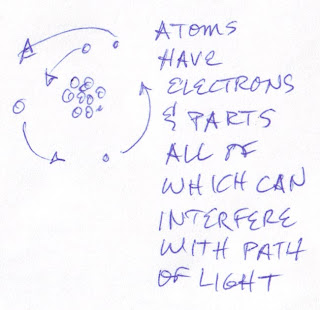 ATOMS
HAVE
ELECTRONS
& PARTS
ALL OF
WHICH CAN
INTERFERE
WITH PATH
OF LIGHT